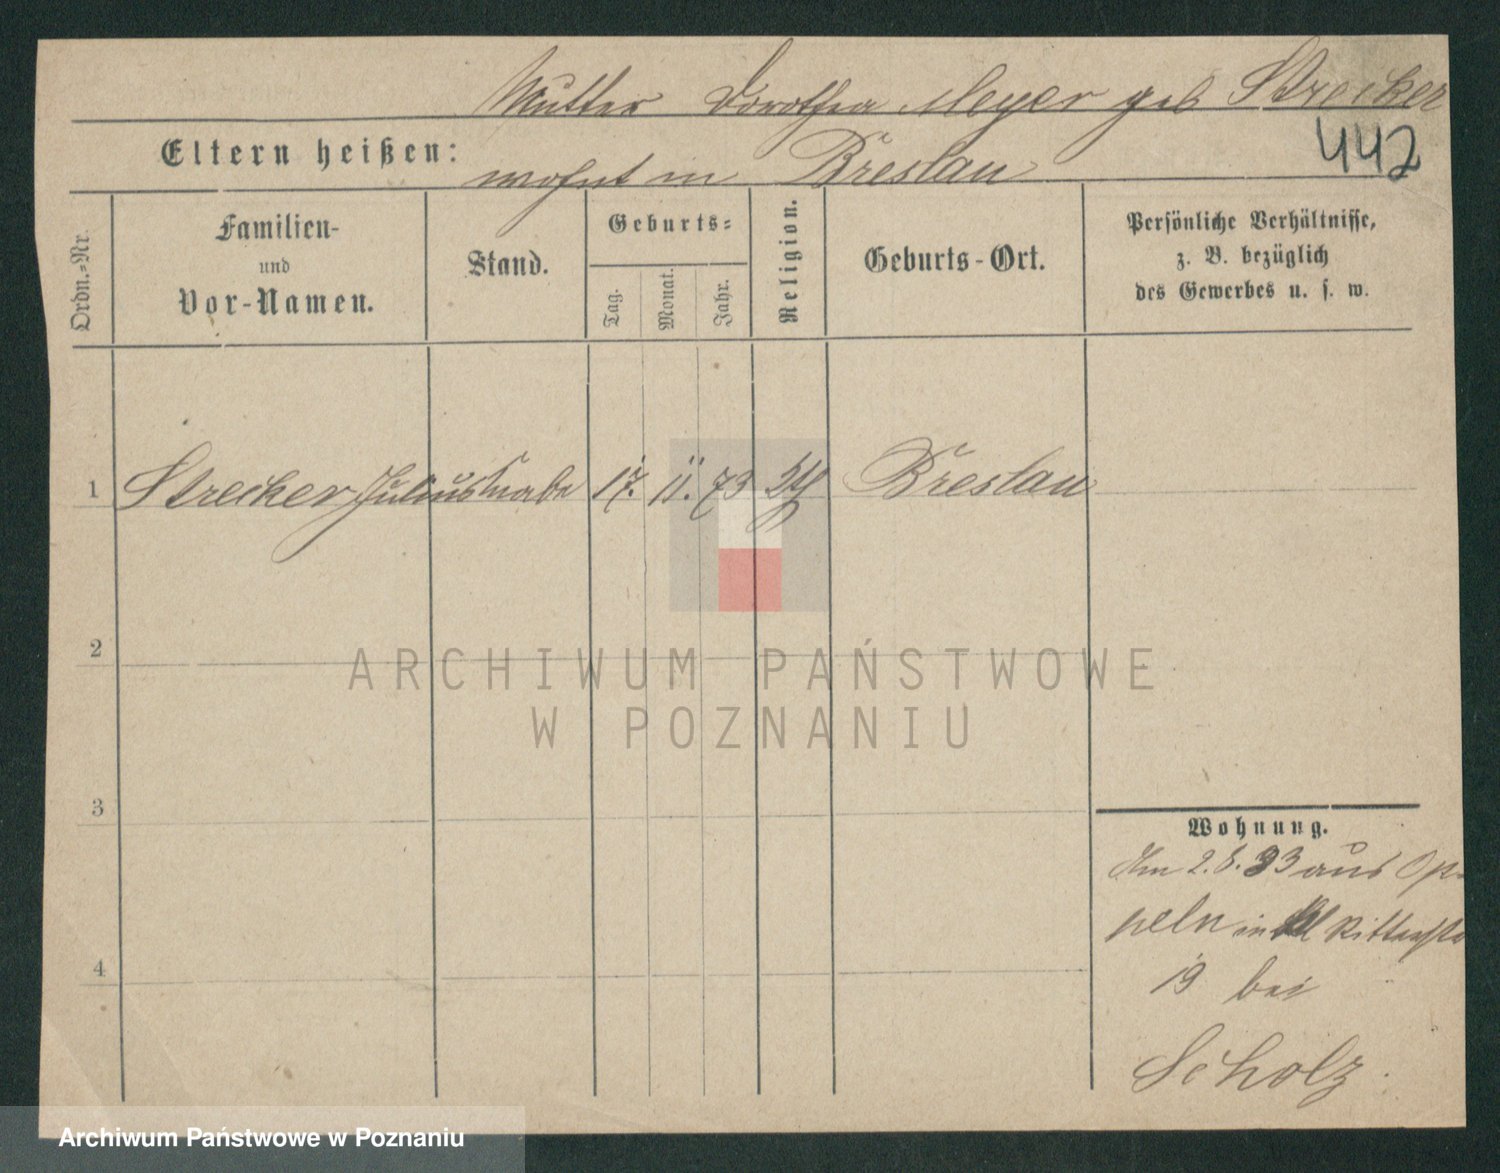 Mutter Dorothea Meyer geb Strecker
Eltern heißen:
442
wohnt in Breslau
Ordn.=Nr.
Familien-
und
Vor-Namen.
Stand.
Geburts=
Tag.
Monat.
Jahr.
Religion.
Geburts-Ort.
Persönliche Verhältnisse,
z. B. bezüglich
des Gewerbes u. s. w.
1 Strecker Julius Knabe 17. 11. 73 Breslau
2
ARCHIWUM PAŃSTWOWE
W POZNANIU
3
Wohnung.
2.8.83 aus Op-
peln in Ritterstr
4
19 bei
Scholz
Archiwum Państwowe w Poznaniu